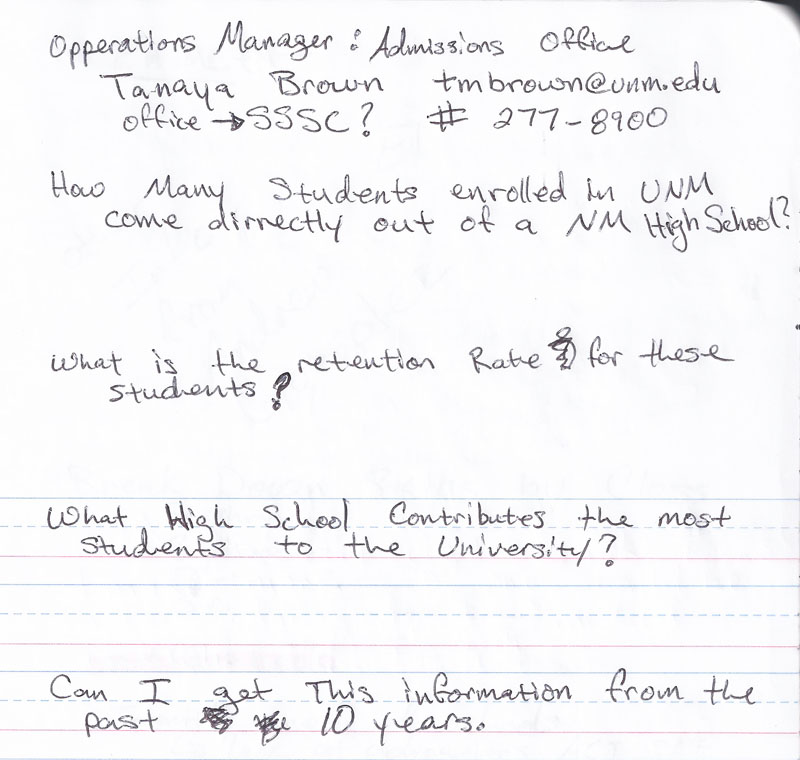 Opperations Manager : Admissions Office
Tanaya Brown tmbrown@unm.edu
office → SSSC? # 277-8900
How Many Students enrolled in UNM
come dirrectly out of a NM High School?
What is the retention Rate for these
students?
What High School Contributes the most
students to the University?
Can I get This information from the
past 10 years.